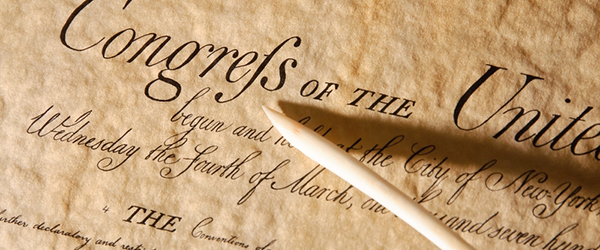 Congreſs OF THE United
begun and held at the City of New-York
Wednesday the Fourth of March, and seven
THE Conventions of
urther declaratory and